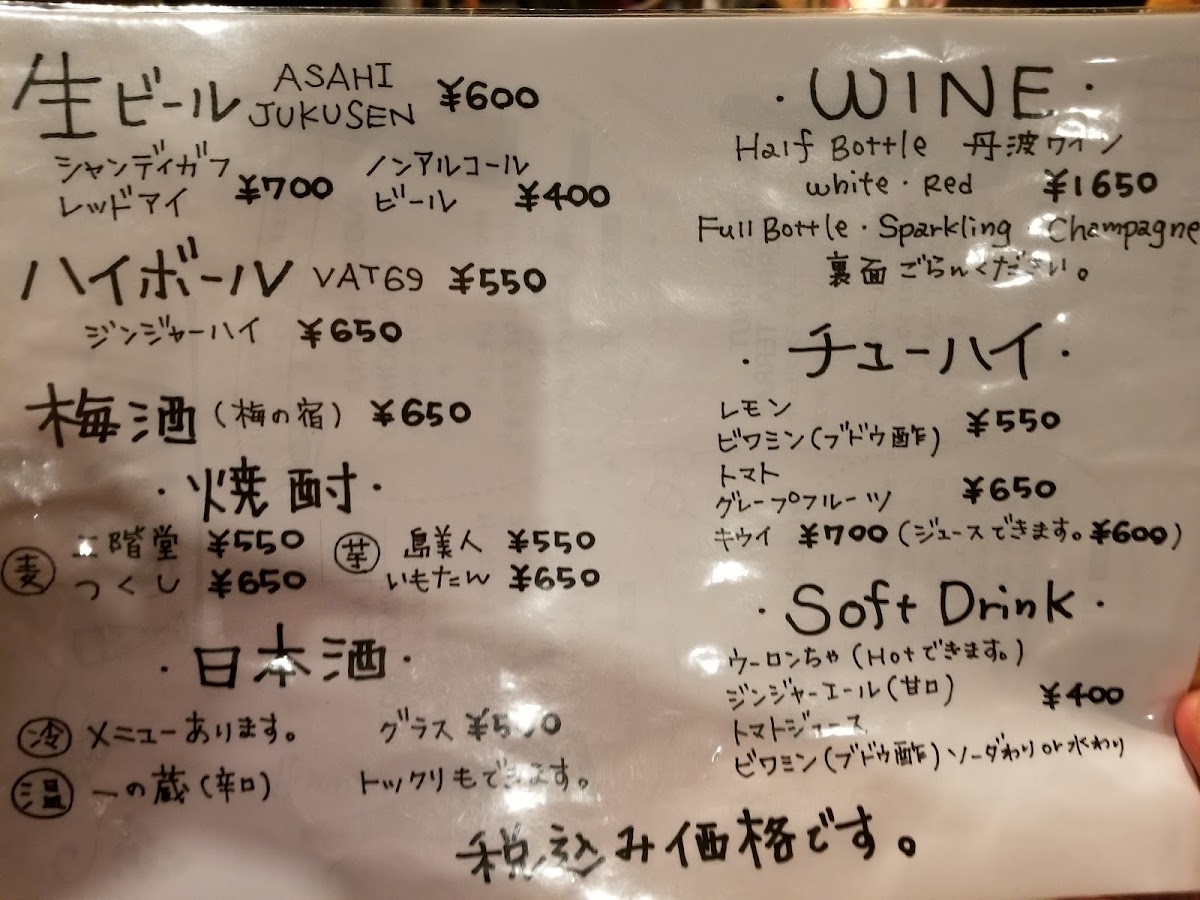 生ビール ASAHI JUKUSEN ¥600
シャンディガフ
レッドアイ ¥700
ノンアルコール
ビール ¥400
ハイボール VAT69 ¥550
ジンジャーハイ ¥650
梅酒(梅の宿) ¥650
・焼酎・
麦 二階堂 ¥550
つくし ¥650
芋 島美人 ¥550
いもたん ¥650
・日本酒・
冷 メニューあります。 グラス
温 一の蔵(辛口) トックリもできます。
・WINE・
Half Bottle 丹波ワイン
white・Red ¥1650
Full Bottle・Sparkling・Champagne
裏面ごらんください。
・チューハイ・
レモン
ビワミン(ブドウ酢) ¥550
トマト
グレープフルーツ ¥650
キウイ ¥700(ジュースできます。¥600)
・Soft Drink・
ウーロンちゃ(Hotできます。)
ジンジャーエール(甘口) ¥400
トマトジュース
ビワミン(ブドウ酢)ソーダわりor水わり
税込み価格です。